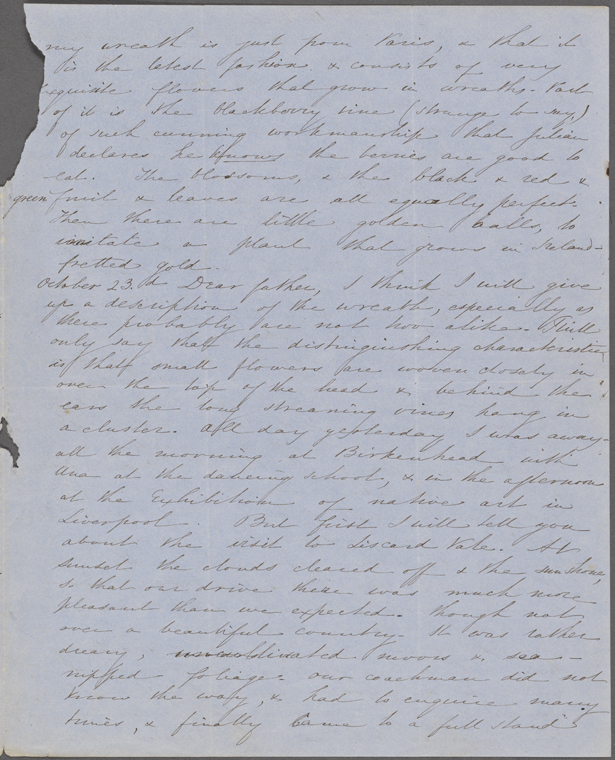 my wreath is just from Paris, & that it
is the latest fashion & consists of very
exquisite flowers that grow in wreaths. Part
of it is the blackberry vine (strange to say)
of such cunning workmanship that Julian
declares he knows the berries are good to
eat. The blossoms, & the black & red &
green fruit & leaves are all equally perfect.
Then there are little golden balls, to
imitate a plant that grows in Ireland—
fretted gold.
October 23.d Dear father, I think I will give
up a description of the wreath, especially as
there probably are not two alike. I will
only say that the distinguishing characteristic
is that small flowers are woven closely in
over the top of the head & behind the
ears the long streaming vines hang in
a cluster. All day yesterday I was away—
all the morning at Birkenhead with
Una at the dancing school, & in the afternoon
at the Exhibition of native art in
Liverpool. But first I will tell you
about the visit to Liscard Vale. At
sunset the clouds cleared off & the sun shone,
so that our drive there was much more
pleasant than we expected. though not
over a beautiful country. It was rather
dreary, uncultivated moors & sea-
nipped foliage. our coachman did not
know the way, & had to enquire many
times, & finally came to a full stand